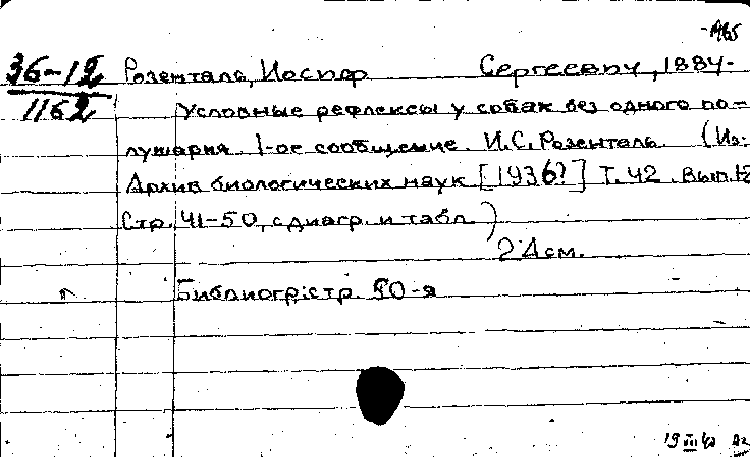 36-12
1162
Розенталь, Иосиф Сергеевич, 1884-
Условные рефлексы у собак без одного по-
лушария. 1-ое сообщение. И.С. Розенталь. (Из:
Архив биологических наук [1936?] Т. 42. Вып. 1-2
Стр. 41-50, с диагр. и табл.)
24 см.
Библиогр: стр. 50-я
19 III 40